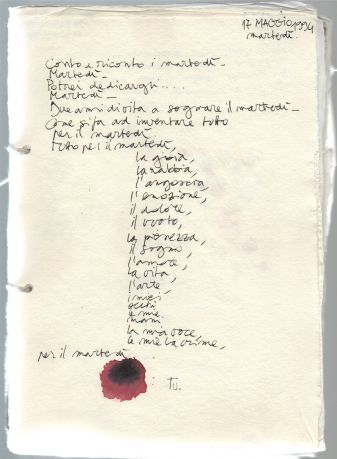 17 MAGGIO 1994
martedì.
Conto e riconto i martedì_
Martedì_
Potrei dedicargli....
Martedì_
Due anni di vita a sognare il martedì_
Come si fa ad inventare tutto
per il martedì.
Tutto per il martedì,
la gioia,
la rabbia,
l'angoscia,
l'emozione,
il dolore,
il vuoto,
la pienezza,
il sogno,
l'amore,
la vita,
l'arte,
i miei
occhi,
le mie
mani
la mia voce,
le mie lacrime,
per il martedì
: Tu.